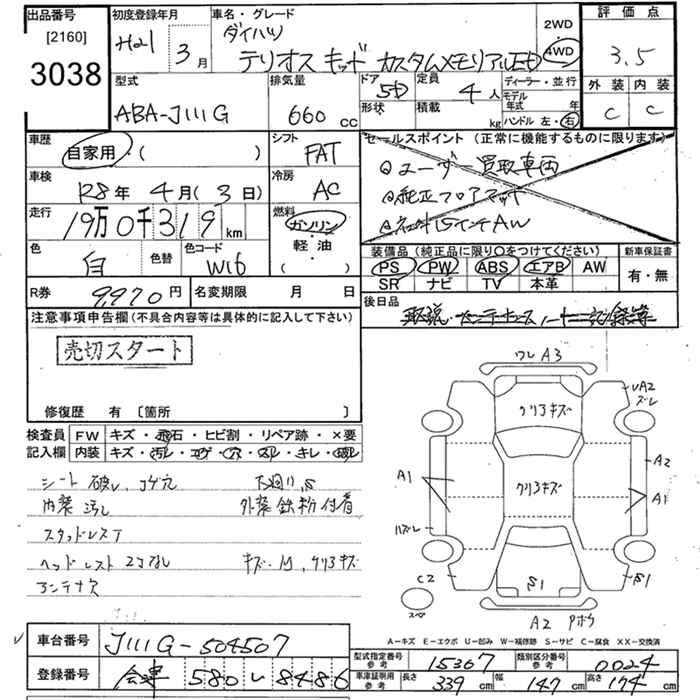 出品番号
[2160]
3038
初度登録年月
H21年 3月
車名・グレード
ダイハツ
テリオス キッド カスタムメモリアルED
2WD
4WD
評価点
3.5
外装 内装
C C
型式
ABA-J111G
排気量
660 cc
ドア
5D
形状
定員
4人
積載
kg
ディーラー・並行
モデル年式 年
ハンドル 左・右
車歴
自家用・( )
シフト
FAT
車検
R8年 4月(3日)
冷房
AC
走行
19万0千319km
燃料
ガソリン
軽油
( )
色
白
色替
色コード
W16
セールスポイント(正常に機能するものに限ります)
ユーザー買取車両
純正フロアマット
社外15インチAW
装備品(純正品に限り○をつけてください)
PS PW ABS エアB AW
SR ナビ TV 本革
新車保証書
有・無
R券 9,970円
名変期限 月 日
後日品
取説・メンテナンスノート・記録簿
注意事項申告欄(不具合内容等は具体的に記入して下さい)
売切スタート
修復歴 有 [箇所 ]
検査員記入欄
FW キズ・飛石・ヒビ割・リペア跡・×要
内装 キズ・汚レ・コゲ・穴・スレ・キレ・破レ
シート破レ、コゲ穴
下廻り、S
内装汚し
外装鉄粉付着
スタッドレスT
ヘッドレスト2コなし
キズ・凹、クリ3キズ
アンテナ欠
ワレ A3
クリ3キズ
UA2
ズレ
A1
クリ3キズ
A2
A1
ハズレ
C2
S1
S1
スペア
A2
Pホウ
A-キズ E-エクボ U-凹み W-補修跡 S-サビ C-腐食 XX-交換済
車台番号
J111G-504507
登録番号
会津 580 い 8486
型式指定番号 参考
15367
類別区分番号 参考
0024
車庫証明用 参考
長さ 339cm 幅 147cm 高さ 174cm